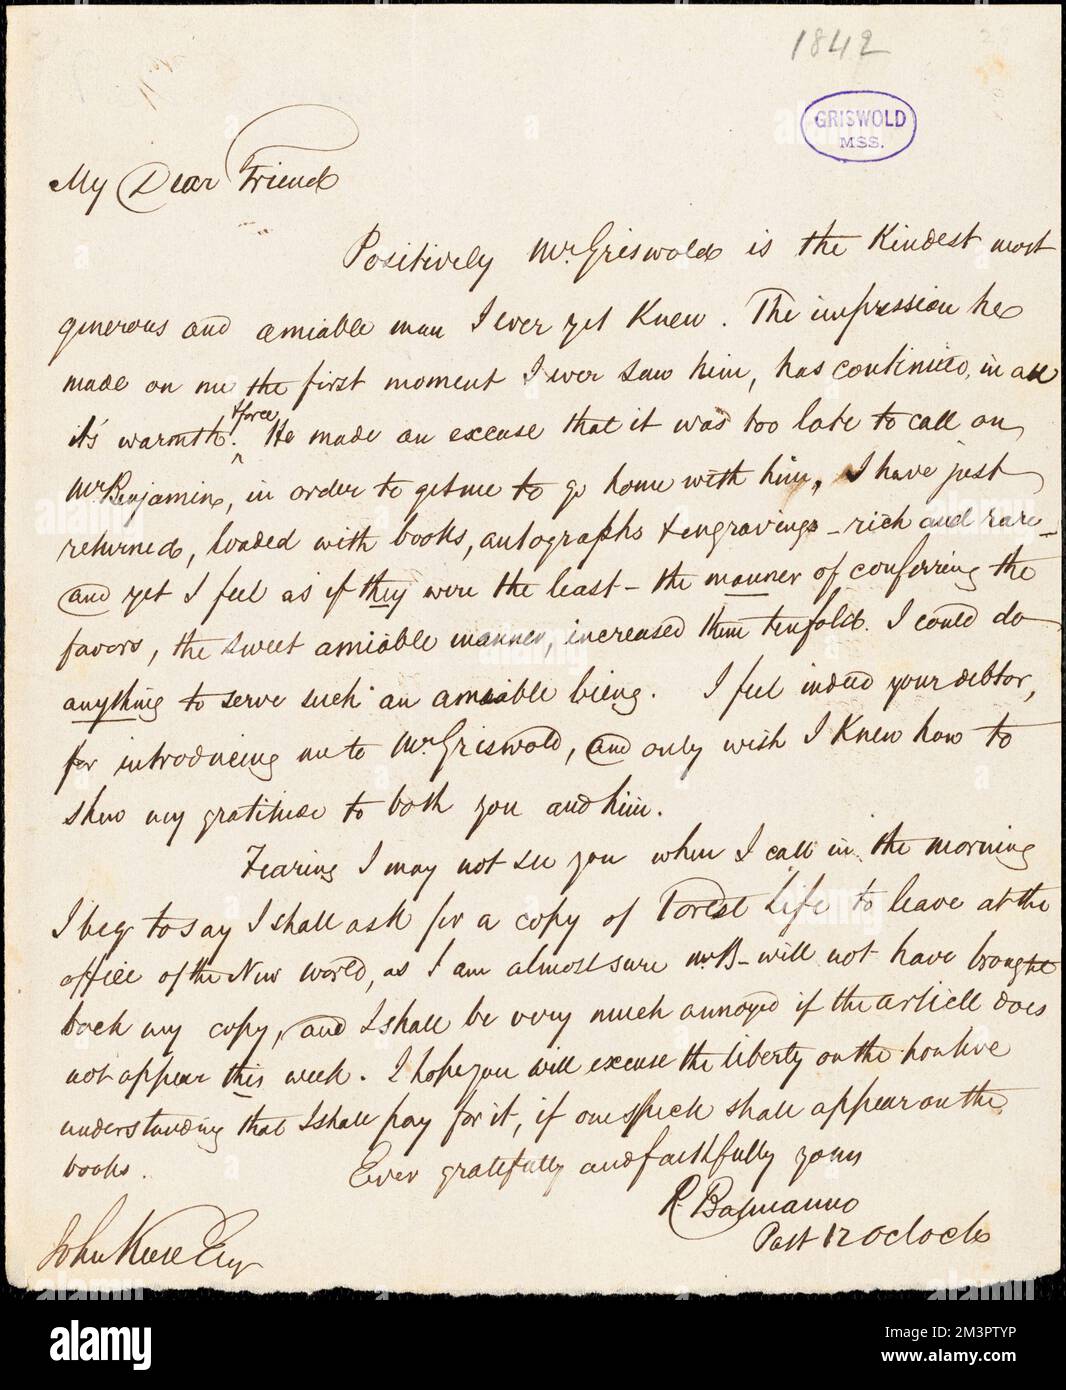 1842
GRISWOLD
MSS.
My Dear Friend
Positively Mr. Griswold is the Kindest most
generous and amiable man I ever yet Knew. The impression he
made on me the first moment I ever saw him, has continued, in all
it's warmth & force. He made an excuse that it was too late to call on
Mr Benjamin, in order to get me to go home with him, I have just
returned, loaded with books, autographs & engravings - rich and rare -
and yet I feel as if they were the least - the manner of conferring the
favors, the sweet amiable manner, increased them tenfold. I could do
anything to serve such an amiable being. I feel indeed your debtor,
for introducing me to Mr Griswold, and only wish I Knew how to
shew my gratitude to both you and him.
Fearing I may not see you when I call in the morning
I beg to say I shall ask for a copy of Forest Life to leave at the
office of the New World, as I am almost sure Mr B- will not have brought
back my copy, and I shall be very much annoyed if the article does
not appear this week. I hope you will excuse the liberty on the positive
understanding that I shall pay for it, if one speck shall appear on the
books.
Ever gratefully and faithfully yours
R. Balmanno
Past 12 oClock
John Keese Esqr
alamy
Image ID: 2M3PTYP
www.alamy.com